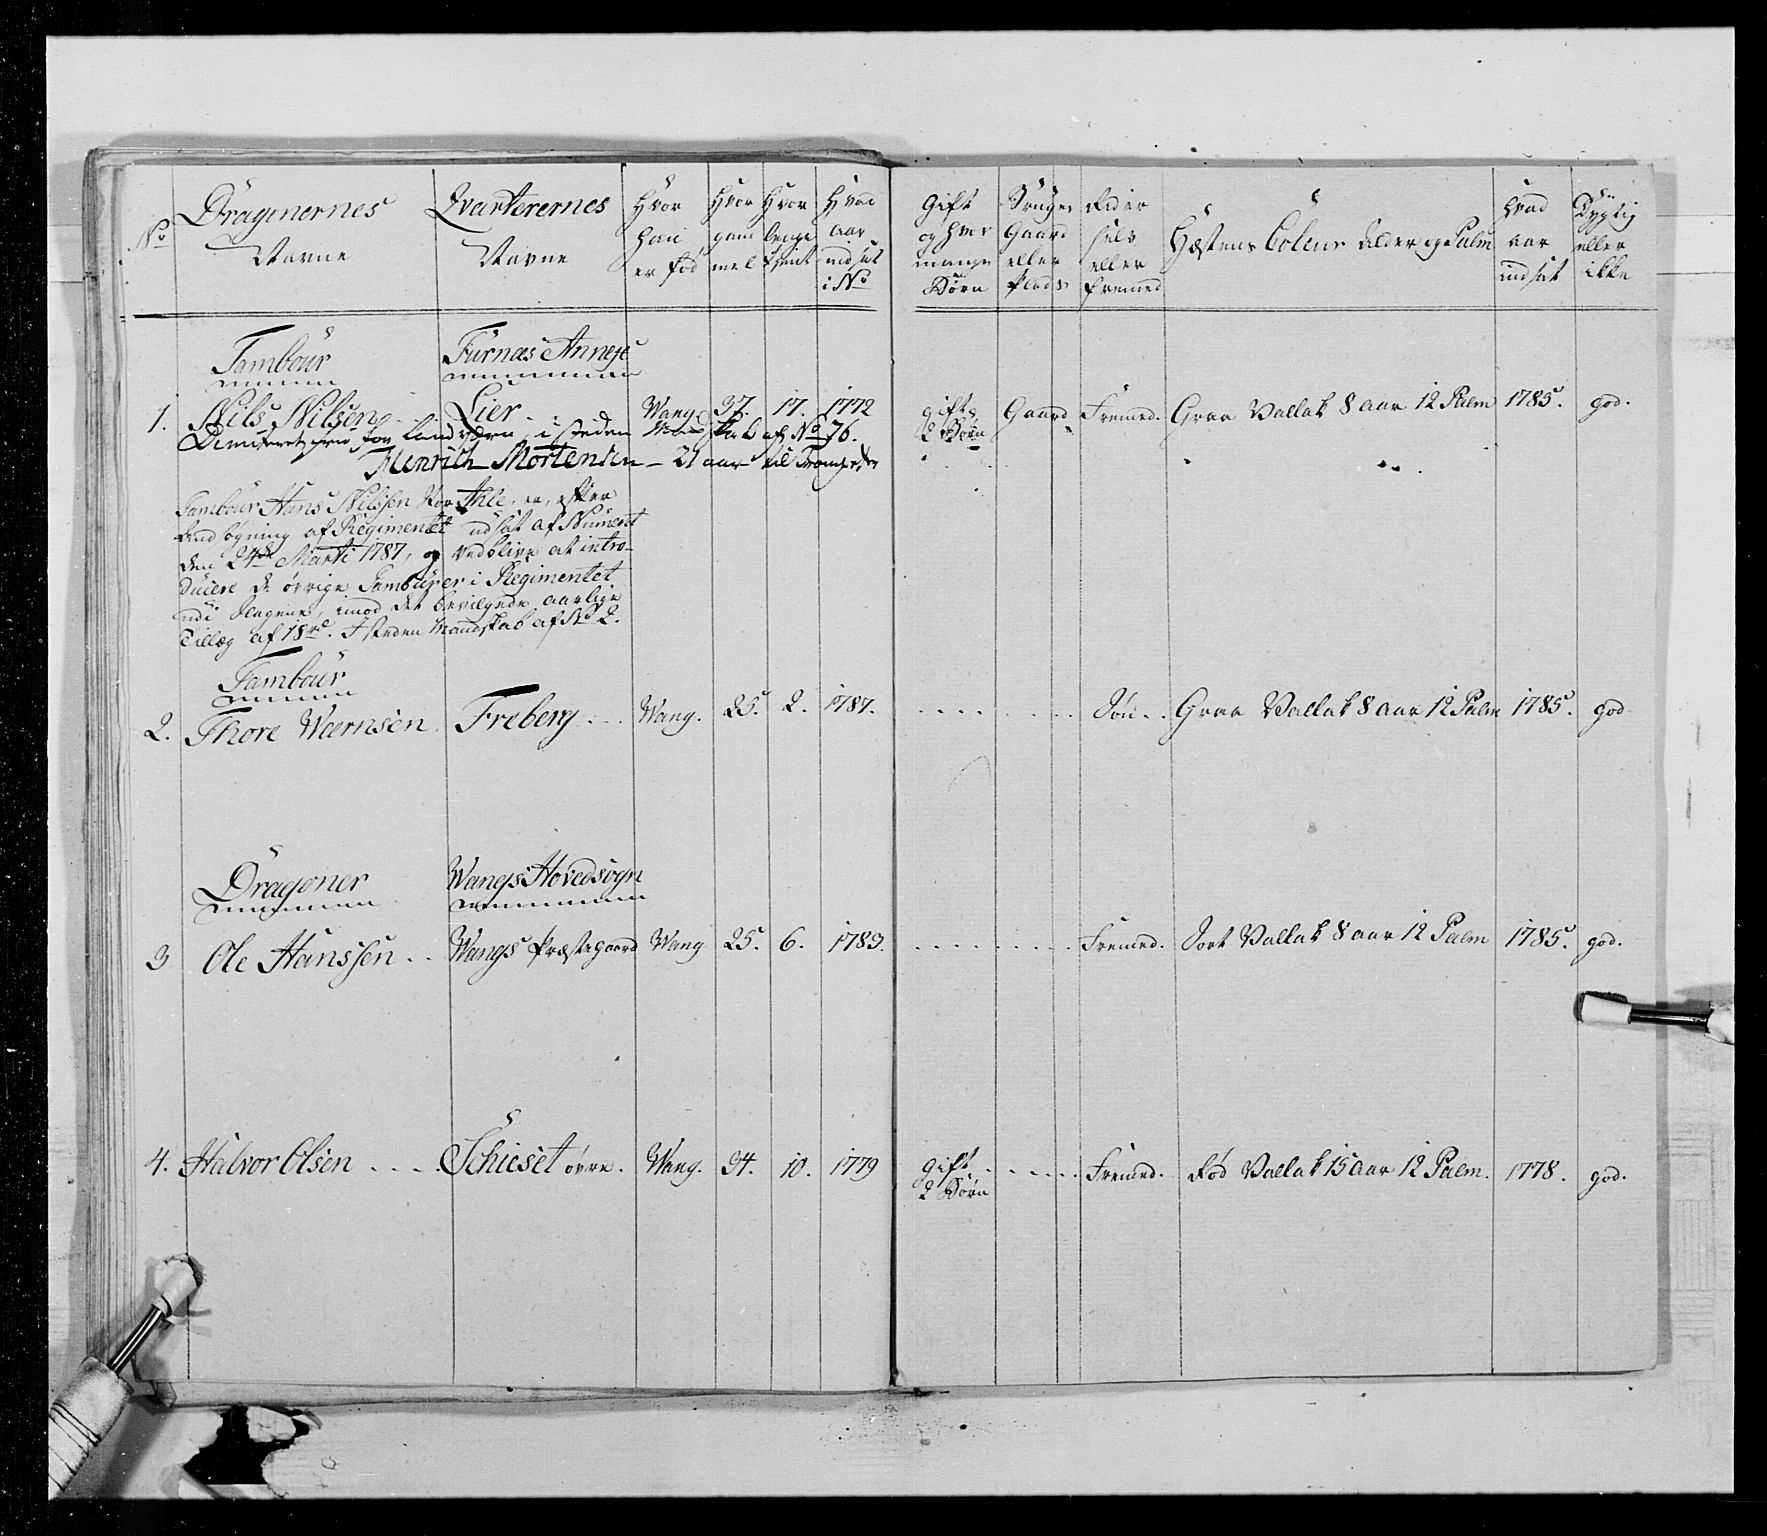 No
Dragonernes Navne
Qvarterernes Navne
Hvor han er fød
Hvor gammel
Hvor lenge tient
Hvad aar indsat i No
Gift og hvor mange Børn
Bruger Gaard eller Plads
Rider selv eller fremed
Hæstens Coleur Alder og Palm
Hvad aar indsat
Dygtig eller ikke
Tambour Furnæs Annexe
1. Nils Nilsen Lier Wang. 37. 17. 1772 gift 2 Børn Gaard Fremed. Graa Vallak 8 aar 12 Palm 1785. god.
Dimiteret for Landværn, i steden Mandskab af No 76.
Henrich Mortensen - 21 aar til
Tambour Hans Nilssen Ihle, er, efter
af Regimentet udsat af Numeret
den 24de Marti 1787, og vedblive at intro-
ducere de øvrige Tambourer i Regimentet
udi Slagene, imod det bevilgede aarlige
Tillæg af 18rd. I steden Mandskab af No 2.
Tambour
2. Thore Wærnsen Freberg Wang. 25. 2. 1787. Søn. Graa Vallak 8 aar 12 Palm 1785. god
Dragoner Wangs Hovedsogn
3 Ole Hanssen Wangs Præstegaard Wang 25. 6. 1783. Fremed. Sort Vallak 8 aar 12 Palm 1785. god.
4. Halvor Olsen Schieset øvre. Wang. 34. 10. 1779 gift 2 Børn Fremed. Rød Vallak 15 aar 12 Palm. 1778. god.